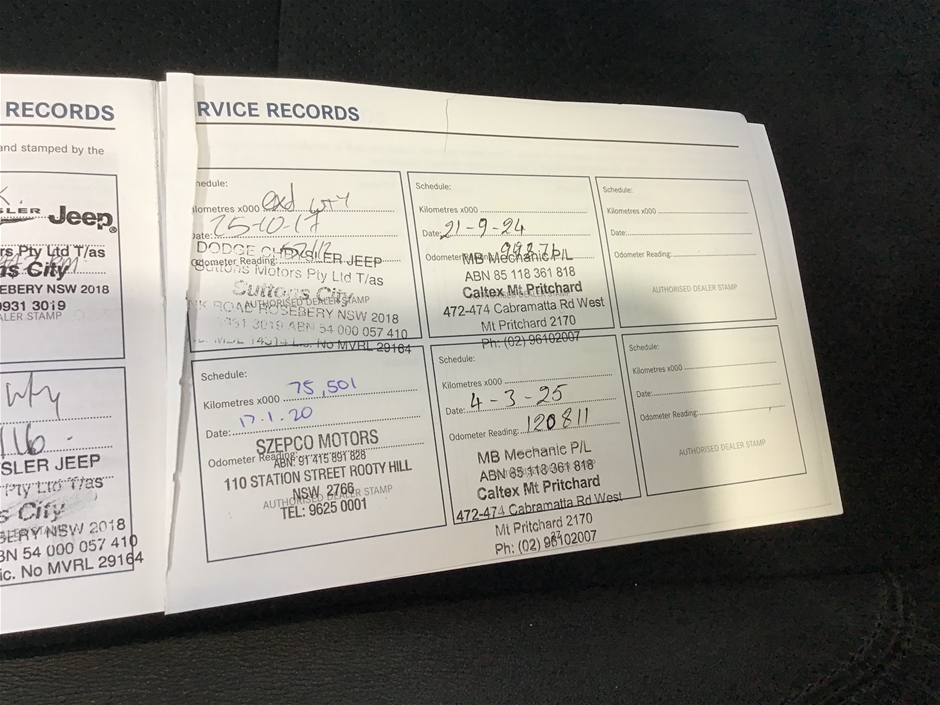 RECORDS
and stamped by the
Jeep®
rs Pty Ltd T/as
ns City
SEBERY NSW 2018
9931 3019
ALER STAMP
116
SLER JEEP
Pty Ltd T/as
s City
SEBERY NSW 2018
BN 54 000 057 410
ic. No MVRL 29164
RVICE RECORDS
hedule:
ilometres x000
Date: 25-10-17
DODGE CHRYSLER JEEP
Odometer Reading:
Suttons Motors Pty Ltd T/as
Suttons City
AUTHORISED DEALER STAMP
ROAD ROSEBERY NSW 2018
9931 3019 ABN 54 000 057 410
Lic. No MVRL 29164
Schedule:
Kilometres x000
Date: 21-9-24
Odometer Reading: 99876
MB Mechanic P/L
ABN 85 118 361 818
Caltex Mt Pritchard
472-474 Cabramatta Rd West
Mt Pritchard 2170
Ph: (02) 96102007
Schedule:
Kilometres x000
Date:
Odometer Reading:
AUTHORISED DEALER STAMP
Schedule:
Kilometres x000 75,501
Date: 17.1.20
SZEPCO MOTORS
Odometer Reading:
ABN: 91 415 891 828
110 STATION STREET ROOTY HILL
NSW, 2766
AUTHORISED DEALER STAMP
TEL: 9625 0001
Schedule:
Kilometres x000
Date: 4-3-25
Odometer Reading: 120811
MB Mechanic P/L
ABN 85 118 361 818
Caltex Mt Pritchard
472-474 Cabramatta Rd West
Mt Pritchard 2170
Ph: (02) 96102007
Schedule:
Kilometres x000
Date:
Odometer Reading:
AUTHORISED DEALER STAMP